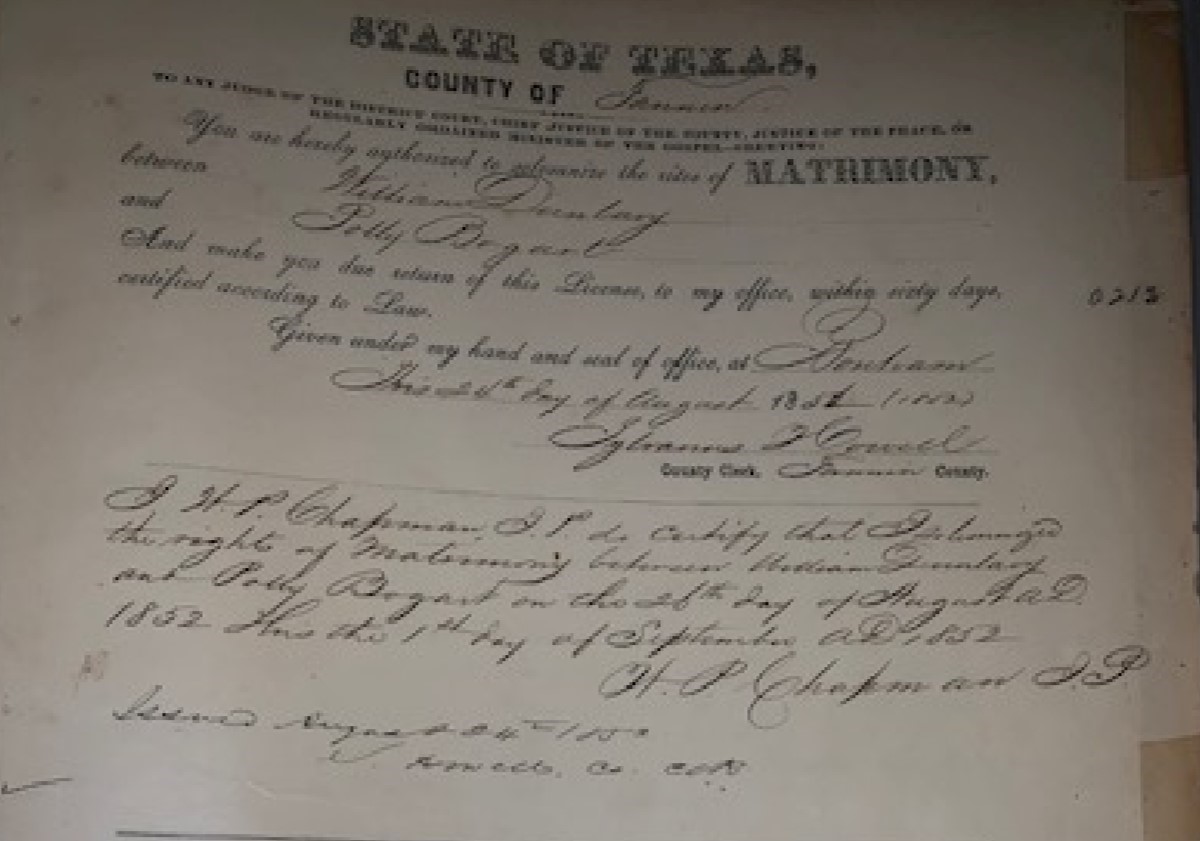 STATE OF TEXAS,
COUNTY OF Fannin
TO ANY JUDGE OF THE DISTRICT COURT, CHIEF JUSTICE OF THE COUNTY, JUSTICE OF THE PEACE, OR
REGULARLY ORDAINED MINISTER OF THE GOSPEL—GREETING:
You are hereby authorized to solemnize the rites of MATRIMONY,
between William Dunlavy
and Polly Bogart
And make you due return of this License, to my office, within sixty days,
certified according to Law.
0212
Given under my hand and seal of office, at Bonham
This 24th day of August 1852 (1852)
County Clerk, Fannin County.
I H. P. Chapman, J. P. do certify that I
the rights of Matrimony between William Dunlavy
and Polly Bogart on the 26th day of August A.D.
1852 this the 1st day of September A.D. 1852
H. P. Chapman J. P
Issued August 24th 1852